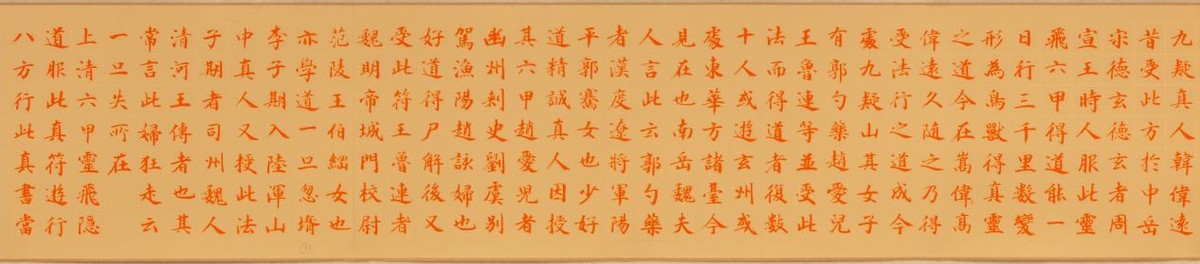 九疑真人韓偉遠
昔受此方於中岳
宋德玄德玄者周
宣王時人服此靈
飛六甲得道能一
日行三千里數變
形為鳥獸得真靈
之道今在嵩偉高
偉遠久隨之乃得
受法行之道成今
處九疑山其女子
有郭勺藥趙愛兒
王魯連等並受此
法而得道者復數
十人或遊玄州或
處東華方諸臺今
見在也南岳魏夫
人言此云郭勺藥
者漢度遼將軍陽
平郭騫女也少好
道精誠真人因授
其六甲趙愛兒者
幽州刾史劉虞別
駕漁陽趙該婦也
好道得尸解後又
受此符王魯連者
魏明帝城門校尉
范陵王伯綱女也
亦學道一旦忽壻
李子期入陸渾山
中真人又授此法
子期者司州魏人
清河王傅者也其
常言此婦狂走云
一旦失所在
上清六甲靈飛隱
道服此真符遊行
八方行此真書當